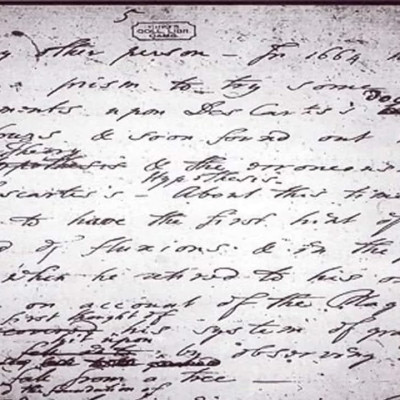 5
KING'S
COLL. LIBR.
CAMB.
other person — In 1664
a prism to try some
ments upon Des Cartes's doc
& soon found out
Theory
hypothesis & the erroneous
Hypothesis.
scartes's — About this time
to have the first hint of
d of fluxions. & in the
when he retired to his o
on account of the Plag
first thought of
his system of gra
hit upon
by observing
fall from a tree —
the foundation of